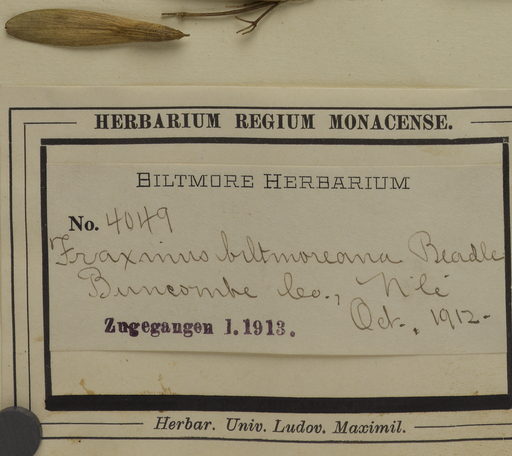 HERBARIUM REGIUM MONACENSE.
BILTMORE HERBARIUM
No. 4049
Fraxinus biltmoreana Beadle
Buncombe Co., N.C.
Oct., 1912-
Zugegangen 1.1913.
Herbar. Univ. Ludov. Maximil.